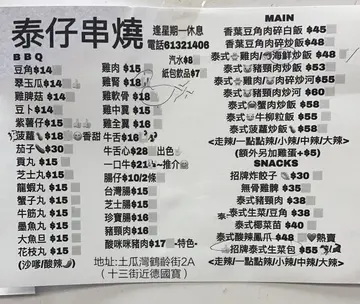 泰仔串燒
逢星期一休息
電話61321406
汽水$8
紙包飲品$7
BBQ
豆角$14
翠玉瓜$14
雞脾菇$14
豆卜$14
紫薯仔$15
菠蘿$18 香甜
茄子$30
貢丸$15
芝士丸$15
龍蝦丸$15
蟹子丸$15
牛筋丸$15
墨魚丸$15
大魚旦$15
花枝丸$15
(沙嗲/酸辣)
雞肉$15
雞腎$18
雞軟骨$18
雞中翼$15
雞全翼$16
牛舌$16
牛舌心$28 出色
一口牛$21 推介
腸仔$10/2條
台灣腸$15
芝士腸$15
珍寶腸$16
豬頸肉$16
酸咪咪豬肉$17-特色-
地址:土瓜灣鶴齡街2A
(十三街近德國寶)
MAIN
香葉豆角肉碎白飯 $45
香葉豆角肉碎炒飯$48
泰式雞肉/海鮮炒飯 $48
泰式豬頸肉炒飯 $53
泰式雞/豆角肉碎炒河$55
泰式豬頸肉炒河 $60
泰式蟹肉炒飯 $58
泰式牛柳粒飯 $55
泰式菠蘿炒飯 $58
<走辣/一點點辣/小辣/中辣/大辣>
(額外另加雞蛋+$5)
SNACKS
招牌炸餃子 $30
無骨雞脾 $35
泰式豬頸肉 $38
泰式生菜/豆角 $38
泰式椰菜苗 $40
泰式酸辣鳳爪 $48 熱賣
招牌泰式生菜包 $55
<走辣/一點點辣/小辣/中辣/大辣>